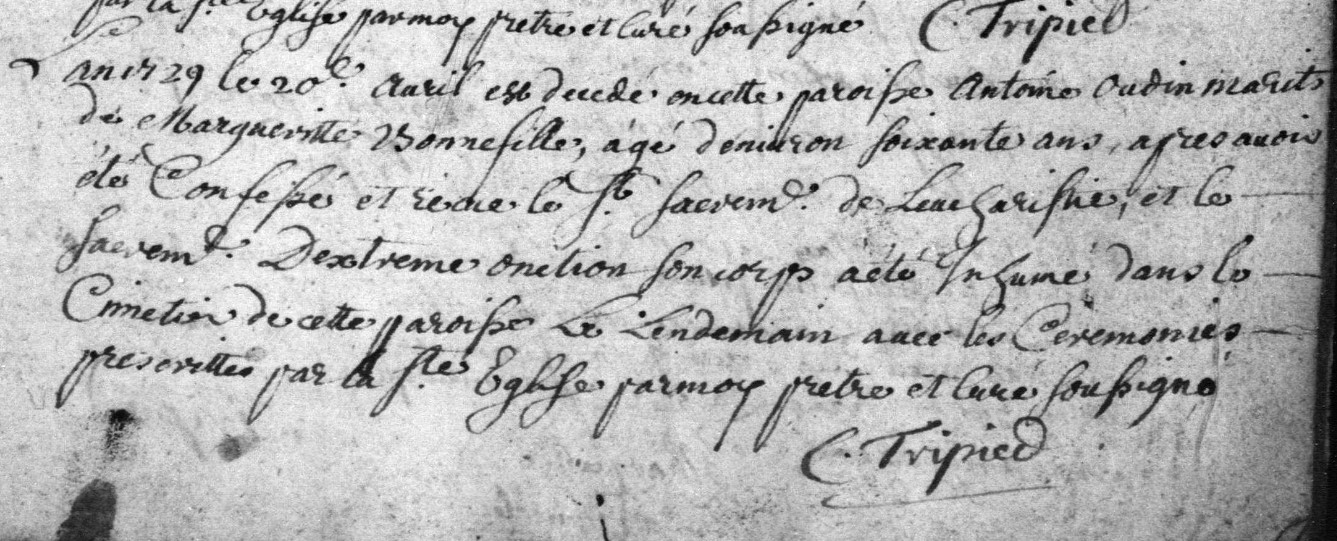 par la ste Eglise par moy pretre et curé soussigné C. Tripied
Lan 1729 le 20e. avril est decedé en cette paroisse Antoine Oudin marit
de Margueritte Bonnefille, âgé d'enuiron soixante ans, apres auoir
été Confessé et recue le st. sacremt. de Leucharistie, et le
sacremt. Dextreme onction son corps a été Inhumé dans le
Cimetier de cette paroisse Le Lendemain auec les Ceremonies
prescrittes par la ste Eglise par moy pretre et curé soussigné
C. Tripied